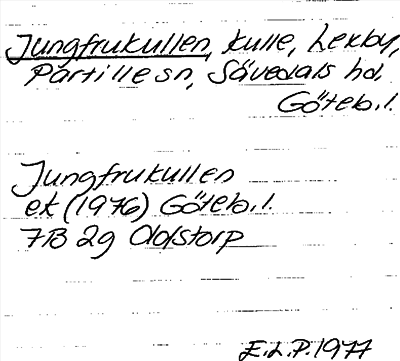 Jungfrukullen, kulle, Lexby,
Partille sn, Sävedals hd,
Göteb. l.
Jungfrukullen
ek (1976) Göteb. l.
7B 2g Oldstorp
E.L.P. 1977